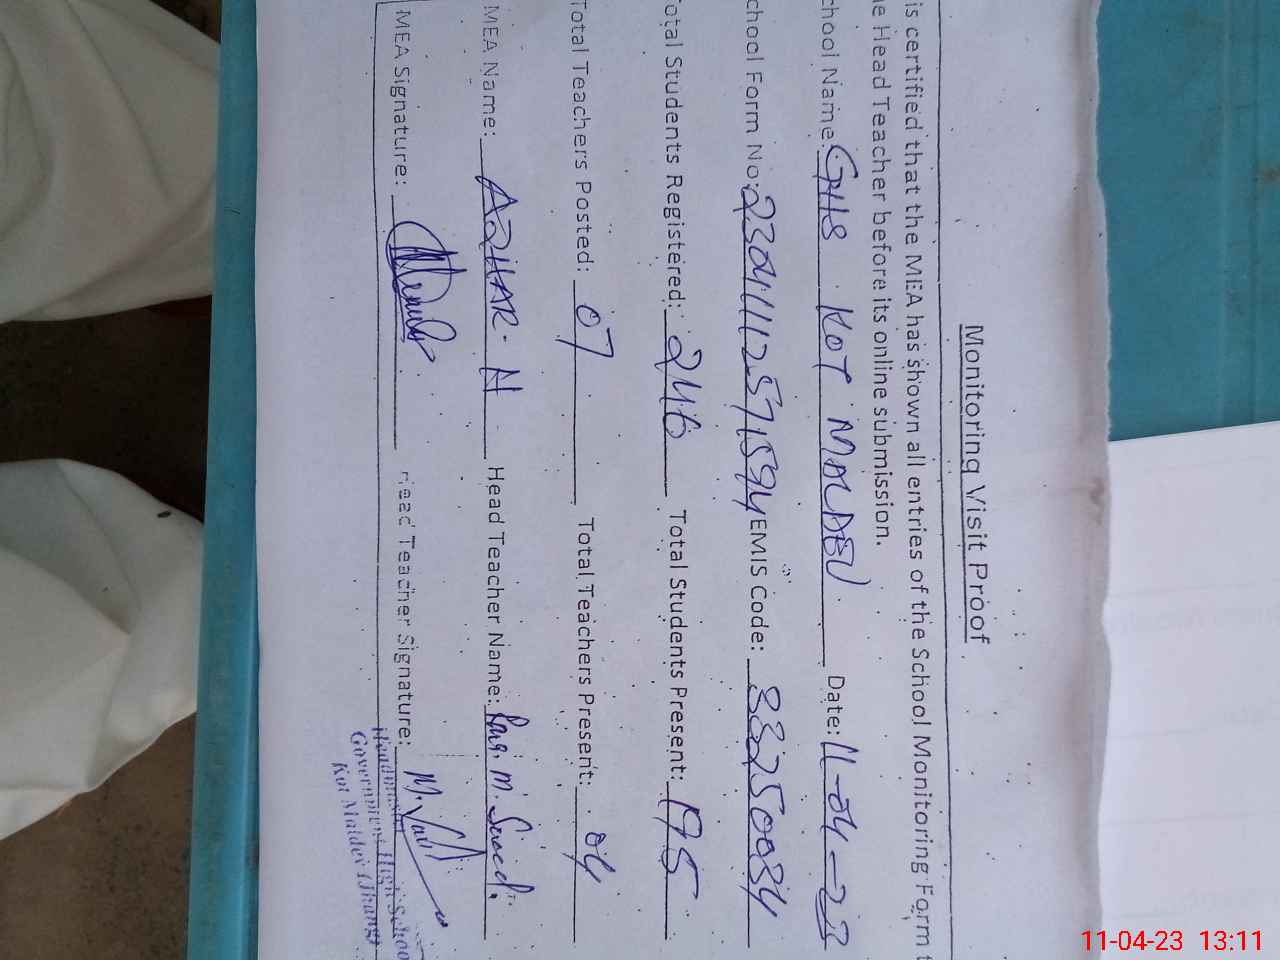 Monitoring Visit Proof
is certified that the MEA has shown all entries of the School Monitoring Form t
e Head Teacher before its online submission.
chool Name: GHS KOT MALDEV Date: 11-04-23
chool Form No: 23041112571594 EMIS Code: 33250034
otal Students Registered: 246 Total Students Present: 195
Total Teachers Posted: 07 Total Teachers Present: 04
MEA Name: AZHAR. H Head Teacher Name: M. Saeed
MEA Signature: Head Teacher Signature:
Headmaster
Government High School
Kot Maldev (Jhang)
11-04-23 13:11